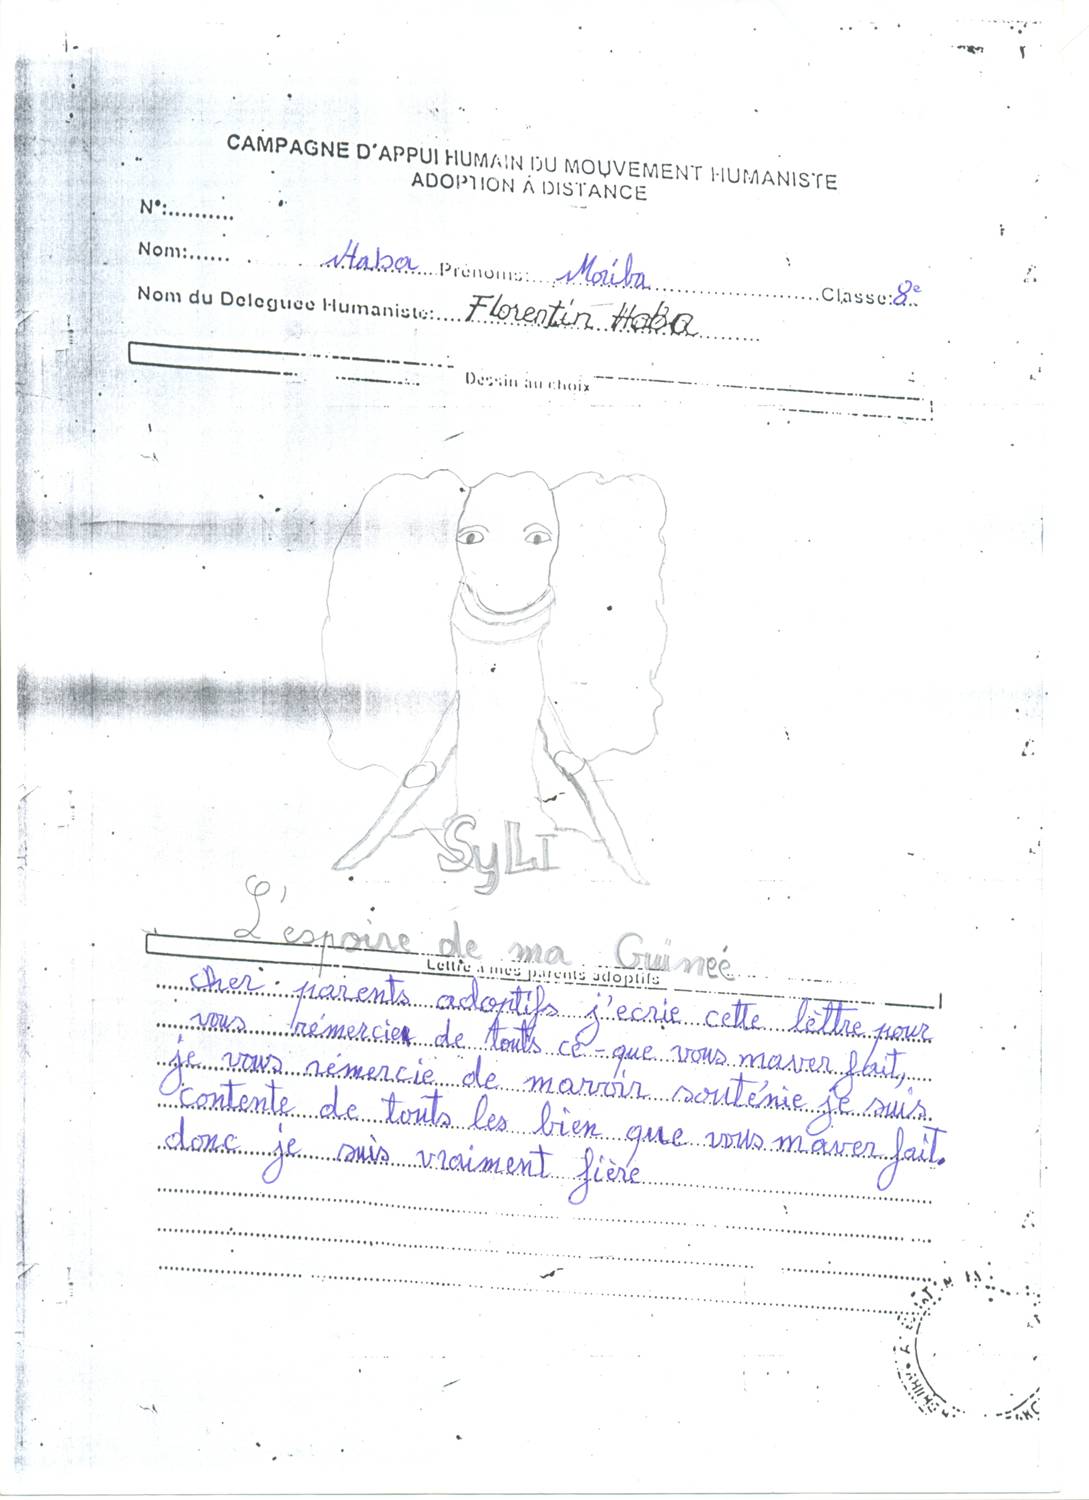 CAMPAGNE D'APPUI HUMAIN DU MOUVEMENT HUMANISTE
ADOPTION À DISTANCE
N°:..........
Nom:...... Haba Prénoms: Moriba Classe: 8e
Nom du Deleguee Humaniste: Florentin Haba
Dessin au choix
SyLI
L'espoire de ma Guineé
Lettre à mes parents adoptifs
cher parents adoptifs j'ecrie cette lèttre pour
vous rémercier de touts ce-que vous maver fait,
je vous rémercie de mavoir souténie je suis
contente de touts les bien que vous maver fait.
donc je suis vraiment fière